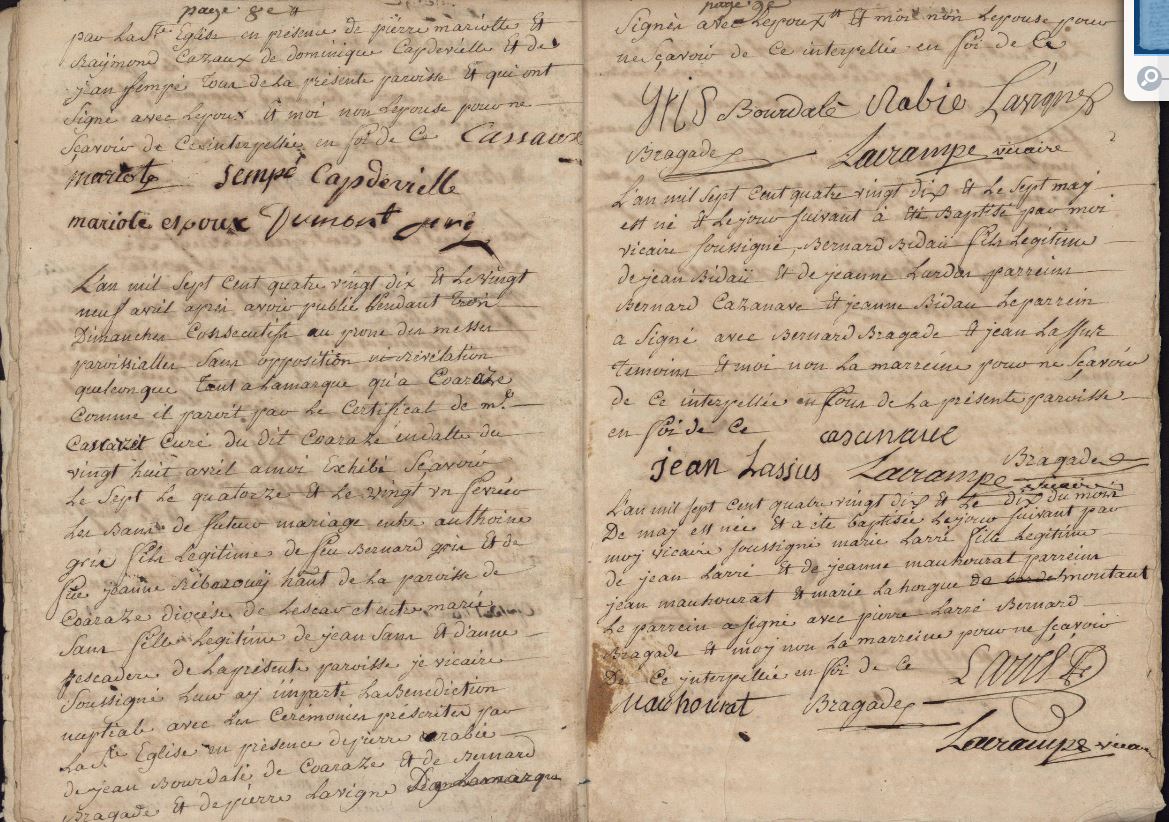 page 8e
par la Ste Eglise en présence de pierre mariotte Et
Raÿmond Cazaux de dominique Capdevielle Et de
jean Sempé Tous de la présente paroisse Et qui ont
signé avec Lepoux Et moi non Lepouse pour ne
sçavoir de Ce interpellée en foi de Ce Cassaux
mariote Sempé Capdevielle
mariote espoux Dumont
L'an mil Sept Cent quatre vingt dix Et le vingt
neuf avril apres avoir publié pendant trois
Dimanches Consecutifs au prone des messes
paroissialles Sans opposition ni révélation
quelconque Tout a Lamarque qu'a Coaraze
Comme il paroit par Le Certificat de mr
Curé du dit Coaraze en datte du
vingt huit avril a moi Exhibé Sçavoir
Le Sept Le quatorze Et Le vingt un fevrier
Les Bans de futeur mariage entre anthoine
gris fils Legitime de feu Bernard gris Et de
feüe jeanne haut de La paroisse de
Coaraze diocèse de Lescar et entre marie
Sans fille Legitime de jean Sans Et d'anne
pescadere de La présente paroisse je vicaire
Soussigné Leur aÿ imparti La Benediction
nuptiale avec Les Cerémonies préscrites par
La Ste Eglise en présence de pierre arabie
de jean Bourdalé de Coaraze Et de Bernard
Bragade Et de pierre Lavigne de Lamarque
page 9e
Signés avec Lepoux Et moi non Lepouse pour
ne Sçavoir de Ce interpellée en foi de Ce
Bourdalé Rabie Lavigne
Bragade Lacrampe vicaire
L'an mil Sept Cent quatre vingt dix Et Le Sept maÿ
est né Et Lejour Suivant à Eté Baptisé par moi
vicaire Soussigné, Bernard Bidaü fils Legitime
de jean Bidaü Et de jeanne Lurdos parreins
Bernard Cazanave Et jeanne Bidau Le parrein
a Signé avec Bernard Bragade Et jean Lassus
Temoins Et moi non La marreine pour ne Sçavoir
de Ce interpellée Tous de La présente paroisse
en foi de Ce casanave
jean Lassus Lacrampe Bragade
vicaire
L'an mil Sept Cent quatre vingt dix Et Le dix du mois
De maÿ est née Et a ete baptisée Lejour Suivant par
moÿ vicaire Soussigné marie Larré fille Legitime
de jean Larré Et de jeanne mauhourat parreins
jean mauhourat Et marie Lahorgue montaut
Le parrein a signé avec pierre Larré Bernard
Bragade Et moÿ non La marreine pour ne Sçavoir
De Ce jnterpellée en foi de Ce Larré
Mauhourat Bragade
Lacrampe vicaire